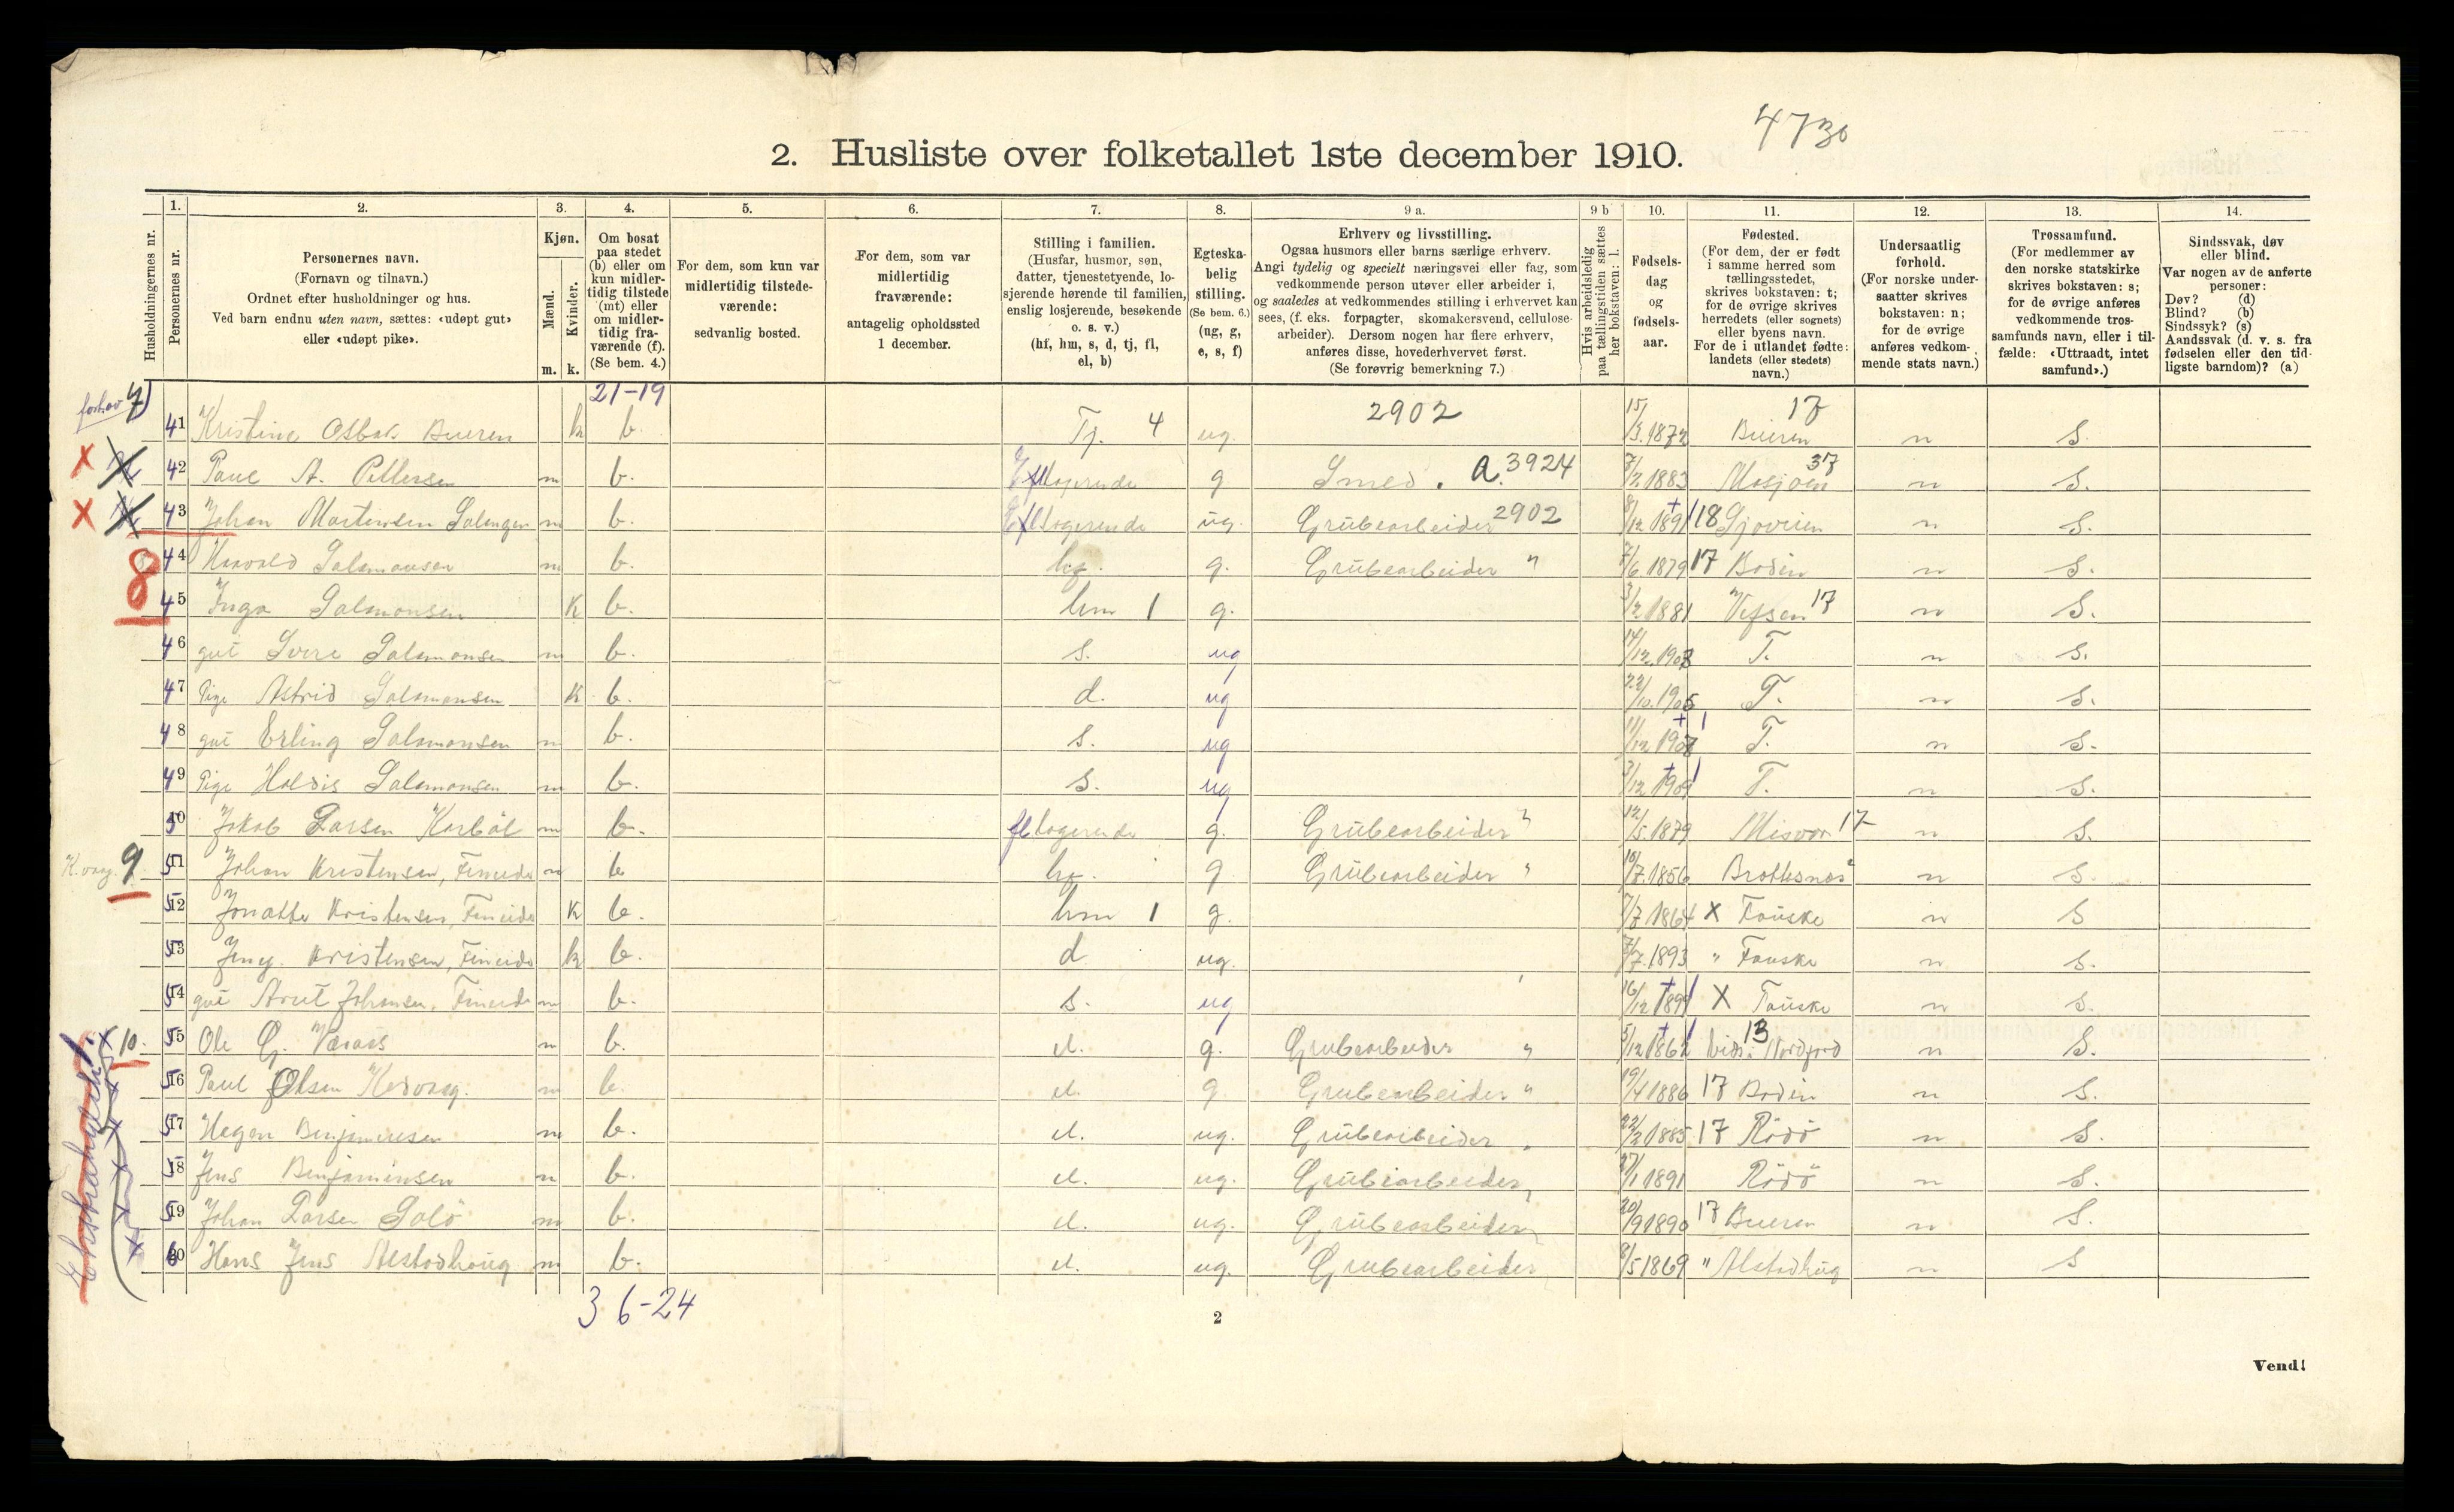 4730
2. Husliste over folketallet 1ste december 1910.
Husholdningernes nr.
1. Personernes nr.
2. Personernes navn.
(Fornavn og tilnavn.)
Ordnet efter husholdninger og hus.
Ved barn endnu uten navn, sættes: «udøpt gut»
eller «udøpt pike».
3. Kjøn.
Mænd. m.
Kvinder. k.
4. Om bosat
paa stedet
(b) eller om
kun midler-
tidig tilstede
(mt) eller
om midler-
tidig fra-
værende (f).
(Se bem. 4.)
5. For dem, som kun var
midlertidig tilstede-
værende:
sedvanlig bosted.
6. For dem, som var
midlertidig
fraværende:
antagelig opholdssted
1 december.
7. Stilling i familien.
(Husfar, husmor, søn,
datter, tjenestetyende, lo-
sjerende hørende til familien,
enslig losjerende, besøkende
o. s. v.)
(hf, hm, s, d, tj, fl,
el, b)
8. Egteska-
belig
stilling.
(Se bem. 6.)
(ug, g,
e, s, f)
9 a. Erhverv og livsstilling.
Ogsaa husmors eller barns særlige erhverv.
Angi tydelig og specielt næringsvei eller fag, som
vedkommende person utøver eller arbeider i,
og saaledes at vedkommendes stilling i erhvervet kan
sees, (f. eks. forpagter, skomakersvend, cellulose-
arbeider). Dersom nogen har flere erhverv,
anføres disse, hovederhvervet først.
(Se forøvrig bemerkning 7.)
9 b Hvis arbeidsledig
paa tællingstiden sættes
her bokstaven: l.
10. Fødsels-
dag
og
fødsels-
aar.
11. Fødested.
(For dem, der er født
i samme herred som
tællingsstedet,
skrives bokstaven: t;
for de øvrige skrives
herredets (eller sognets)
eller byens navn.
For de i utlandet fødte:
landets (eller stedets)
navn.)
12. Undersaatlig
forhold.
(For norske under-
saatter skrives
bokstaven: n;
for de øvrige
anføres vedkom-
mende stats navn.)
13. Trossamfund.
(For medlemmer av
den norske statskirke
skrives bokstaven: s;
for de øvrige anføres
vedkommende tros-
samfunds navn, eller i til-
fælde: «Uttraadt, intet
samfund».)
14. Sindssvak, døv
eller blind.
Var nogen av de anførte
personer:
Døv? (d)
Blind? (b)
Sindssyk? (s)
Aandssvak (d. v. s. fra
fødselen eller den tid-
ligste barndom)? (a)
21-19
7) 41 Kristine Bueren k b. Tj. 4 ug. 2902 15/3.1872 17 Bueren n S.
X 42 Paul A. Pettersen m b. logerende g Smed. a. 3924 7/2 1883 Mosjøen 37 n S.
X 43 Johan Martensen m b. logerende ug. Grubearbeider 2902 8/12 1891 18 n S.
8 44 Haavald Salamonsen m b. hf. g. Grubearbeider " 7/6.1879 17 Bodin n S.
45 Inga Salamonsen K b. hm 1 g. 3/2 1881 Vefsen 17 n S.
46 gut Sverre Salamonsen m b. s. ug 14/12.1903 T. n S.
47 Pige Astrid Salamonsen K b. d. ug 22/10.1905 T. n S.
48 gut Erling Salamonsen m b. s. ug 11/12 1907 T. n S.
49 Pige Haldis Salamonsen m b. s. ug 3/12 1909 T. n S.
50 Jakob Larsen m b. fl logerende g. Grubearbeider " 12/5.1879 Misvær 17 n S.
9 51 Johan Kristensen, Fineide m b hf. g Grubearbeider " 10/7.1856 n S.
52 Kristensen, Fineide K b. hm 1 g. 7/7 1864 X Fauske n S
53 Jeny. Kristensen, Fineide k b. d ug. 7/7.1893 " Fauske n S.
54 gut Arnt Johansen, Fineide m b. s. ug 16/12 1899 X Fauske n S.
10. 55 Ole G. m b. el. g. Grubearbeider " 5/12 1862 13 Nordfjord n S.
56 Paul Olsen m b. el. g Grubearbeider " 19/4 1886 17 Bodin n S.
57 Hagen Benjaminsen m b. el. ug. Grubearbeider " 22/2 1885 17 Rödö n S.
58 Jens Benjaminsen m b. el. ug. Grubearbeider " 27/1 1891 Rödö n S.
59 Johan Larsen m b. el. ug. Grubearbeider " 20/9 1890 17 Bueren n S.
60 Hans Jens Alstadhaug m b. el. ug. Grubearbeider 8/5 1869 " Alstadhug n S
36-24
2
Vend!